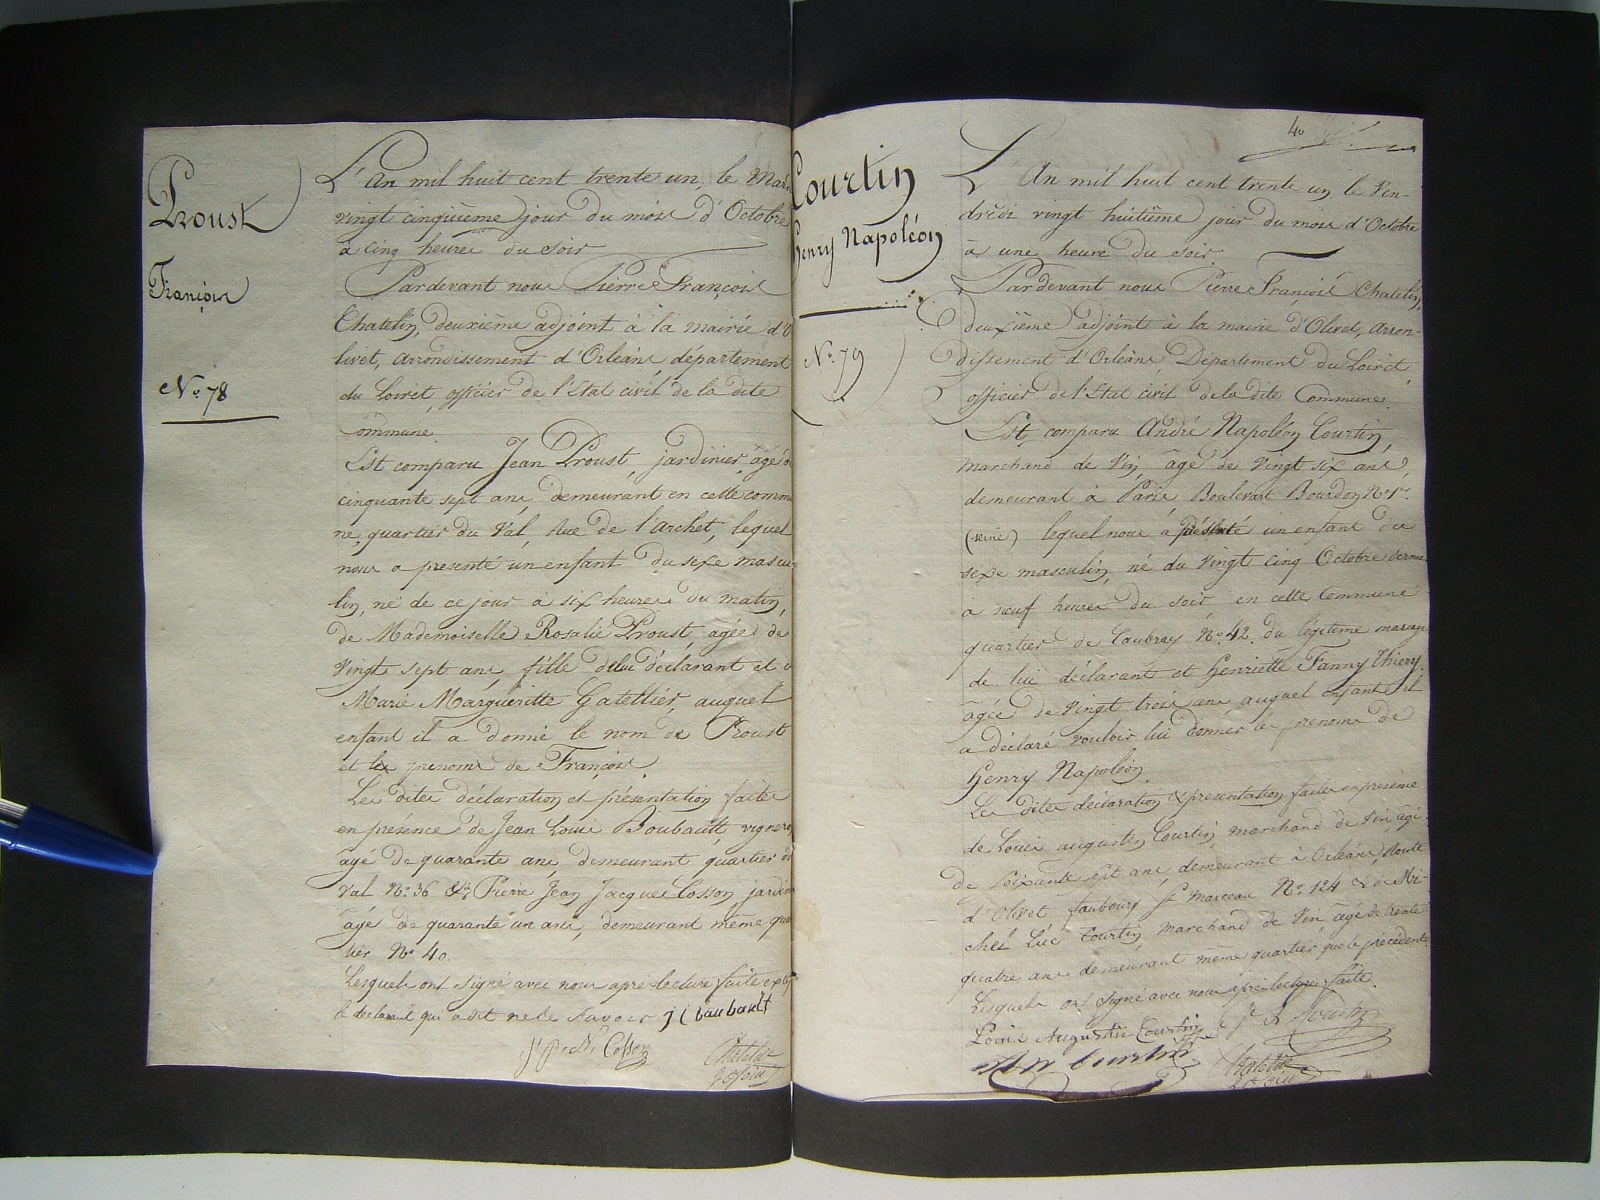 Proust
François
N° 78
L'An mil huit cent trente un, le Mardi
vingt cinquième jour du mois d'Octobre
à cinq heures du soir
Pardevant nous Pierre François
Chatelin, deuxième adjoint à la mairie d'O
livet, arrondissement d'Orléans, département
du Loiret, officier de l'Etat civil de la dite
Commune.
Est comparu Jean Proust, jardinier, âgé de
cinquante sept ans, demeurant en cette commu
ne, quartier du Val, Rue de l'archet, lequel
nous a présenté un enfant du sexe mascu
lin, né de ce jour à six heures du matin,
de Mademoiselle Rosalie Proust, agée de
vingt sept ans, fille delui déclarant et d
Marie Margueritte Gatellier, auquel
enfant il a donné le nom de Proust
et les prénoms de François.
Les dites déclaration et présentation faites
en présence de Jean Louis Boubault, vigneron
âgé de quarante ans, demeurant quartier du
Val N° 36 & Pierre Jean Jacques Cosson, jardin
âgé de quarante un ans, demeurant même quar
tier N° 40.
Lesquels ont signé avec nous après lecture faite excepté
le déclarant qui a dit ne le savoir J L baubault
J. P. Cosson
Chatelin
adjoint
40
Courtin
Henry Napoléon
N° 79
L'An mil huit cent trente un, le Ven-
dredi vingt huitième jour du mois d'Octobre
à une heure du soir.
Pardevant nous Pierre François Chatelin,
deuxième adjoint à la mairie d'Olivet, arron-
dissement d'Orléans, Département du Loiret
officier de l'Etat civil dela dite Commune.
Est comparu André Napoléon Courtin,
marchand de Vin, âgé de vingt six ans,
demeurant à Paris Boulevart Bourdon N° 1er.
(seine) lequel nous à présenté un enfant du
sexe masculin, né du vingt cinq Octobre dernier
à neuf heures du soir, en cette Commune
quartier de Caubray N° 42, du légitime mariage
de lui déclarant et Henriette Fanny Thiery
âgée de vingt trois ans auquel enfant il
a déclaré vouloir lui donner les prénoms de
Henry Napoléon.
Les dites déclaration & présentation faites en présence
de Louis augustin Courtin, marchand de Vin, âgé
de soixante sept ans, demeurant à Orléans Route
d'Olivet, faubourg St Marceau N° 124 & de Mi-
chel Luc Courtin, marchand de Vin, âgé de trente
quatre ans demeurant même quartier que le précédent.
Lesquels ont signé avec nous après lecture faite.
Louis Augustin Courtin
Courtin
A N Courtin
Chatelin
adjoint